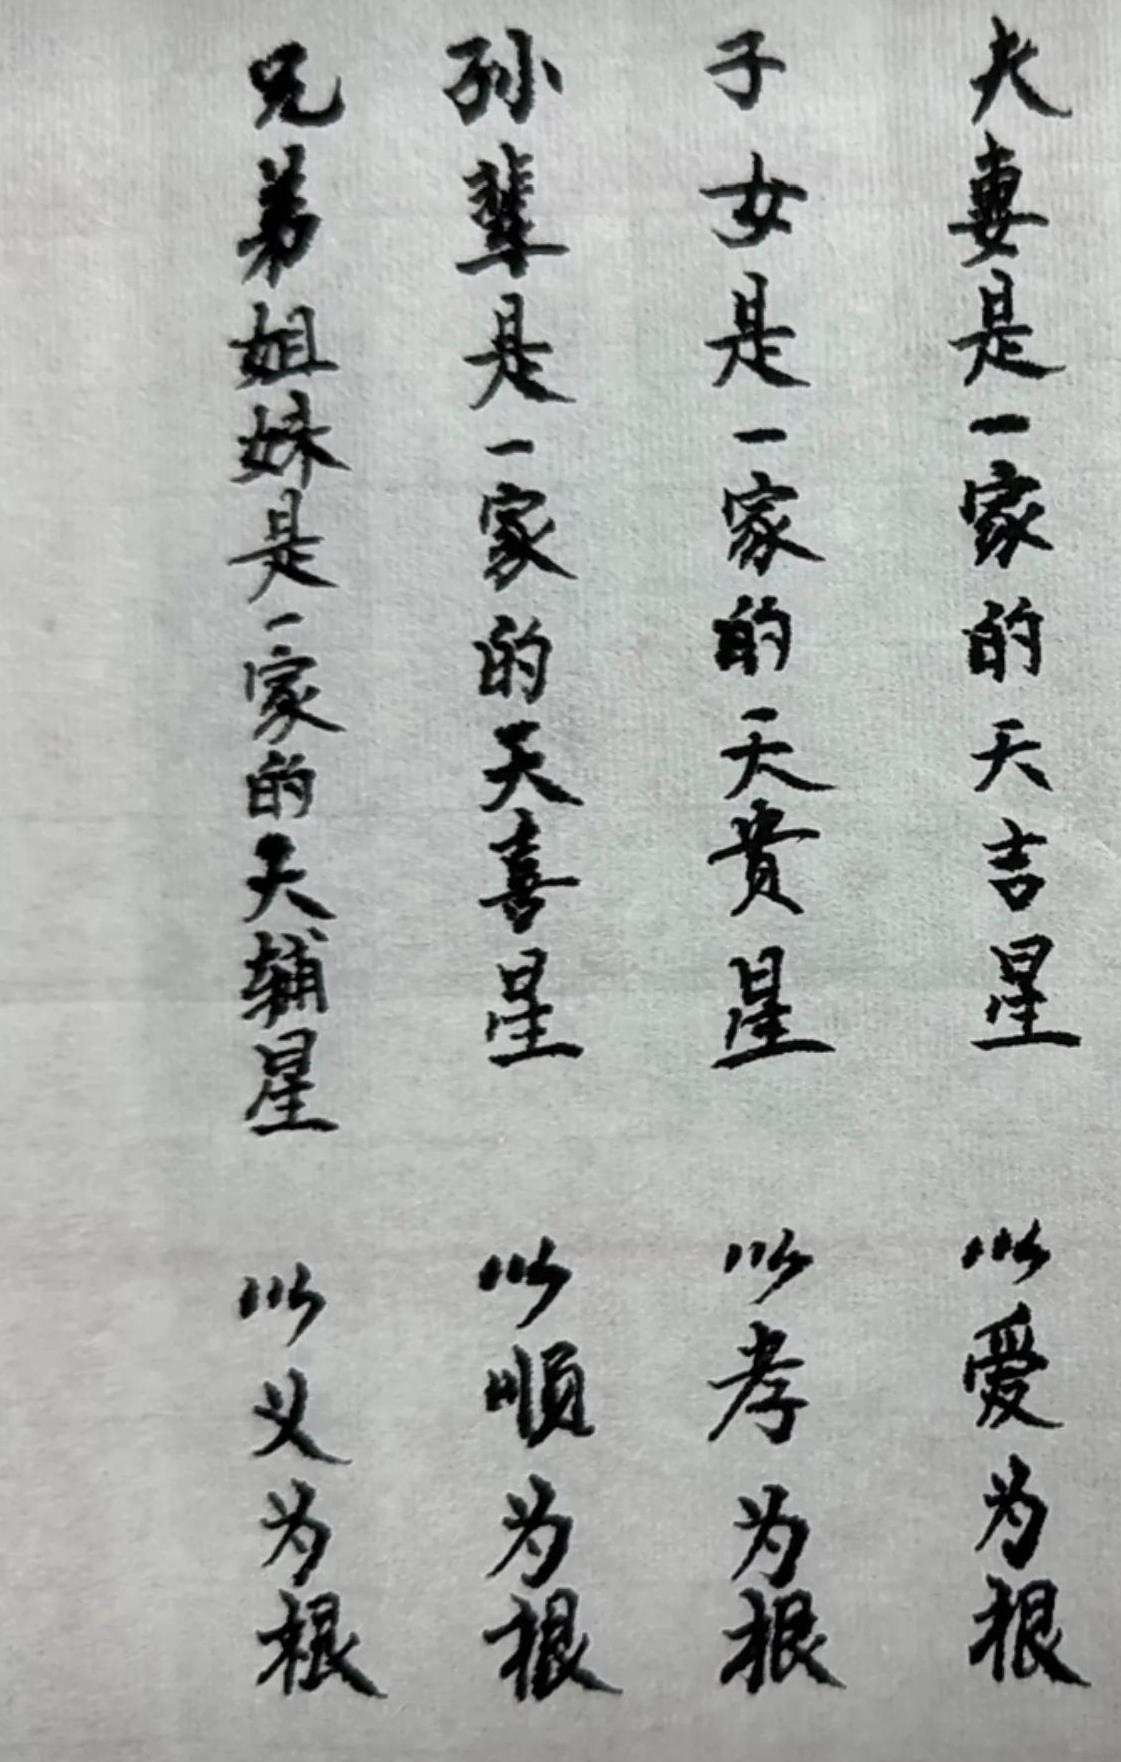 夫妻是一家的天吉星 以爱为根
子女是一家的天贵星 以孝为根
孙辈是一家的天喜星 以顺为根
兄弟姐妹是一家的天辅星 以义为根